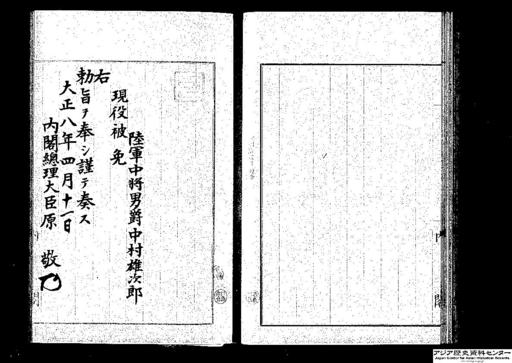 陸軍中將男爵中村雄次郎
現役被免
右
勅旨ヲ奉シ謹テ奏ス
大正八年四月十一日
內閣總理大臣原 敬
アジア歴史資料センター
Japan Center for Asian Historical Records